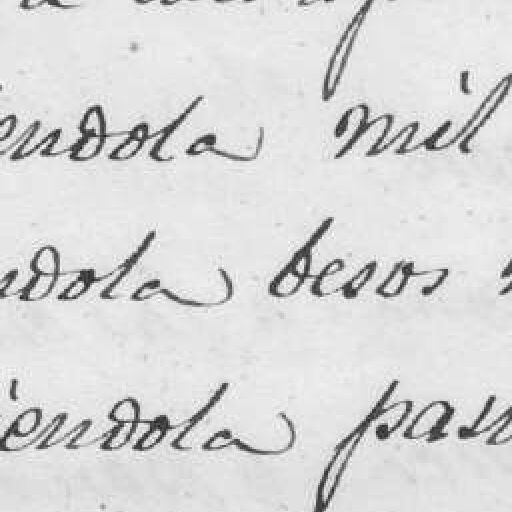 endola mil
ndola besos
iendola pasa